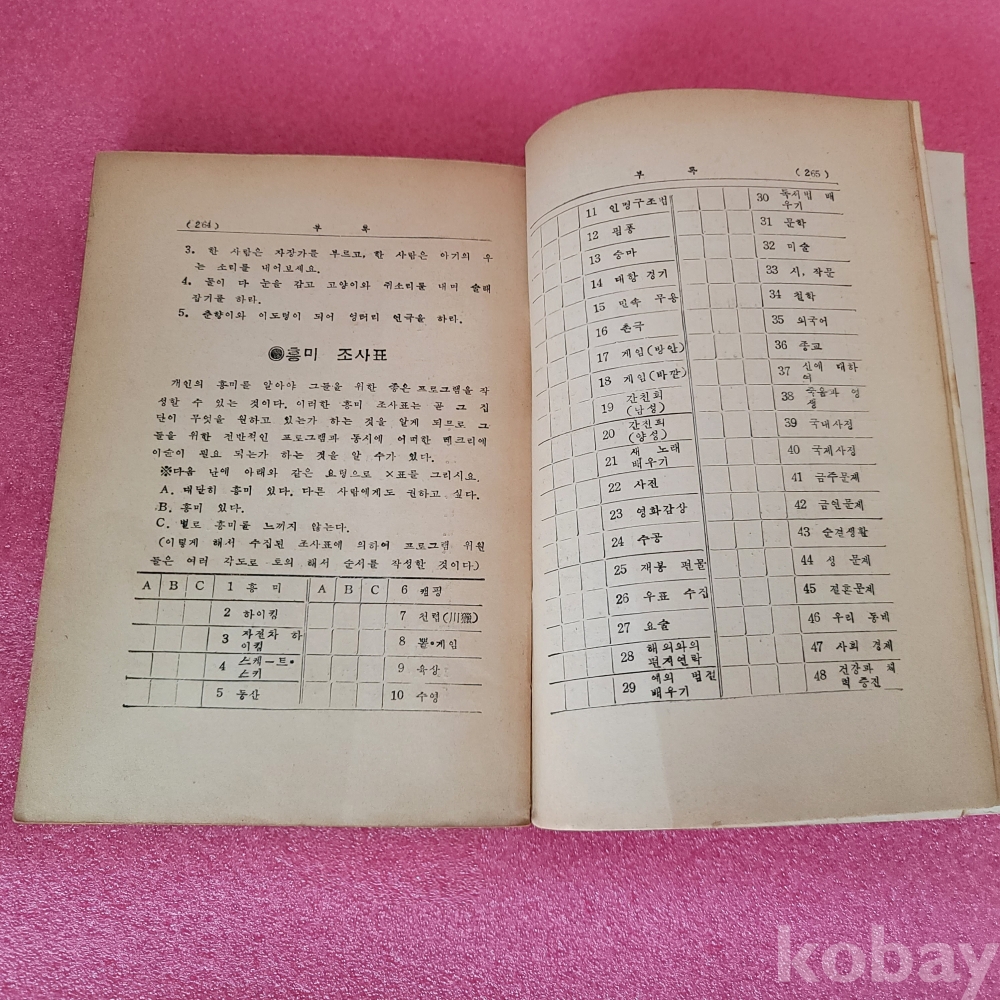 (264) 부 록
3. 한 사람은 자장가를 부르고, 한 사람은 아기의 우
는 소리를 내어보세요.
4. 둘이 다 눈을 감고 고양이와 쥐소리를 내며 술래
잡기를 하라.
5. 춘향이와 이도령이 되어 엉터리 연극을 하라.
흥미 조사표
개인의 흥미를 알아야 그들을 위한 좋은 프로그램을 작
성할 수 있는 것이다. 이러한 흥미 조사표는 곧 그 집
단이 무엇을 원하고 있는가 하는 것을 알게 되므로 그
들을 위한 전반적인 프로그램과 동시에 어떠한 레크리에
이슌이 필요 되는가 하는 것을 알 수가 있다.
※다음 난에 아래와 같은 요령으로 ×표를 그리시요.
A. 대단히 흥미 있다. 다른 사람에게도 권하고 싶다.
B. 흥미 있다.
C. 별로 흥미를 느끼지 않는다.
(이렇게 해서 수집된 조사표에 의하여 프로그램 위원
들은 여러 각도로 토의 해서 순서를 작성한 것이다)
A B C 1 흥 미 A B C 6 캠핑
2 하이킹 7 천렵(川獵)
3 자전차 하
이킹 8 뽈·게임
4 스케-트·
스키 9 육상
5 등산 10 수영
부 록 (265)
11 인명구조법
12 핑퐁
13 승마
14 대항 경기
15 민속 무용
16 촌극
17 게임(방안)
18 게임(바깥)
19 간친회
(남성)
20 간친회
(양성)
21 새 노래
배우기
22 사진
23 영화감상
24 수공
25 재봉 편물
26 우표 수집
27 요술
28 해외와의
편지연락
29 예의 범절
배우기
30 독서법 배
우기
31 문학
32 미술
33 시, 작문
34 철학
35 외국어
36 종교
37 신에 대하
여
38 죽음과 영
생
39 국내사정
40 국제사정
41 금주문제
42 금연문제
43 순결생활
44 성 문제
45 결혼문제
46 우리 동네
47 사회 경제
48 건강과 체
력 증진
kobay